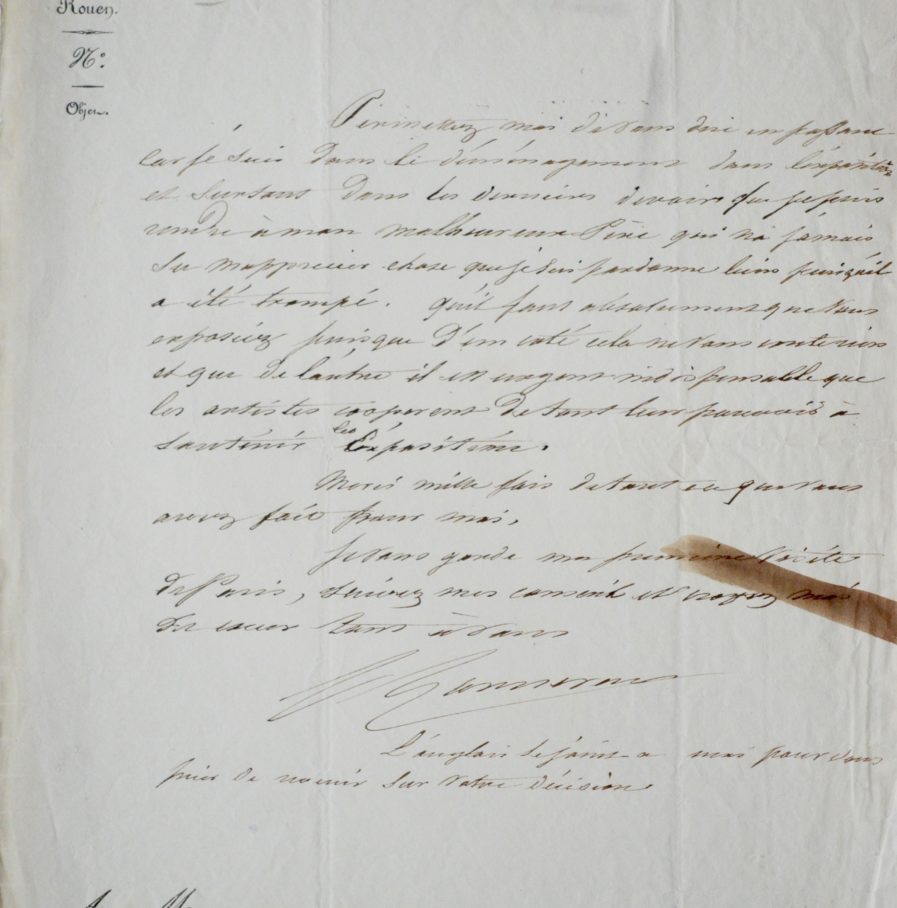 Rouen.
N°.
Objet.
Permettez moi de vous dire en passant
car je suis dans le déménagement dans l'exposition
et surtout dans les derniers devoirs que je puis
rendre à mon malheureux Père qui n'a jamais
su m'apprécier chose que je lui pardonne bien puisqu'il
a été trompé. qu'il faut absolument que vous
exposiez puisque d'un coté cela ne vous coute rien
et que de l'autre il est urgent indispensable que
les artistes coopèrent de tout leur pouvoir à
soutenir les Expositions.
Merci mille fois de tout ce que vous
avez fait pour moi,
Je vous garde ma première visite
de Paris, suivez mes conseils et croyez moi
de coeur tout à vous
L'anglais se joint a moi pour vous
prier de revenir sur votre décision.